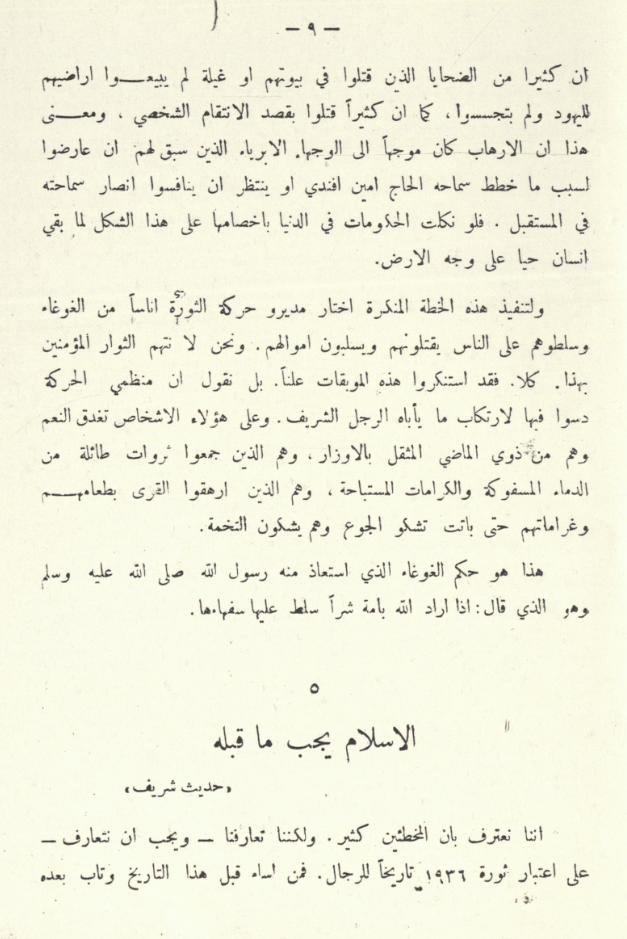 — ٩ —
ان كثيرا من الضحايا الذين قتلوا في بيوتهم او غيلة لم يبيعـــوا اراضيهم
لليهود ولم يتجسسوا، كما ان كثيراً قتلوا بقصد الانتقام الشخصي، ومعـــنى
هذا ان الارهاب كان موجهاً الى الوجهاء الابرياء الذين سبق لهم ان عارضوا
لسبب ما خطط سماحه الحاج امين افندي او ينتظر ان ينافسوا انصار سماحته
في المستقبل. فلو نكلت الحكومات في الدنيا باخصامها على هذا الشكل لما بقي
انسان حيا على وجه الارض.
ولتنفيذ هذه الخطة المنكرة اختار مديرو حركة الثورة اناساً من الغوغاء
وسلطوهم على الناس يقتلونهم ويسلبون اموالهم. ونحن لا نتهم الثوار المؤمنين
بهذا. كلا. فقد استنكروا هذه الموبقات علناً. بل نقول ان منظمي الحركة
دسوا فيها لارتكاب ما يأباه الرجل الشريف. وعلى هؤلاء الاشخاص تغدق النعم
وهم من ذوي الماضي المثقل بالاوزار، وهم الذين جمعوا ثروات طائلة من
الدماء المسفوكة والكرامات المستباحة، وهم الذين ارهقوا القرى بطعامهـــم
وغراماتهم حتى باتت تشكو الجوع وهم يشكون التخمة.
هذا هو حكم الغوغاء الذي استعاذ منه رسول الله صلى الله عليه وسلم
وهو الذي قال: اذا اراد الله بامة شراً سلط عليها سفهاءها.
٥
الاسلام يجب ما قبله
«حديث شريف»
اننا نعترف بان المخطئين كثير. ولكننا تعارفنا — ويجب ان نتعارف —
على اعتبار ثورة ١٩٣٦ تاريخاً للرجال. فمن اساء قبل هذا التاريخ وتاب بعده